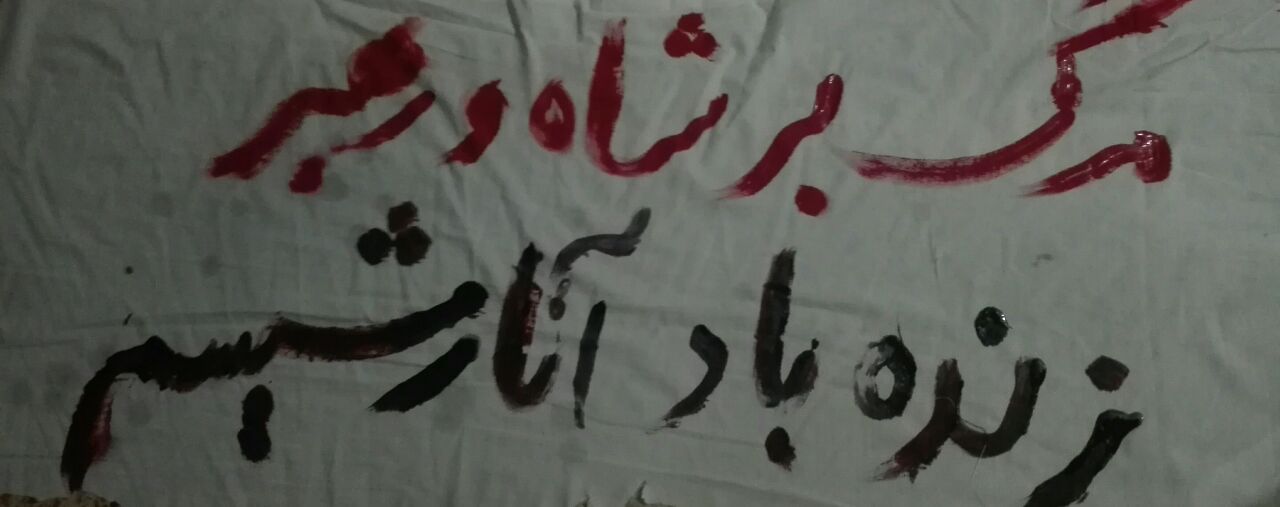 مرگ بر شاه و رهبر
زنده باد آنارشیسم